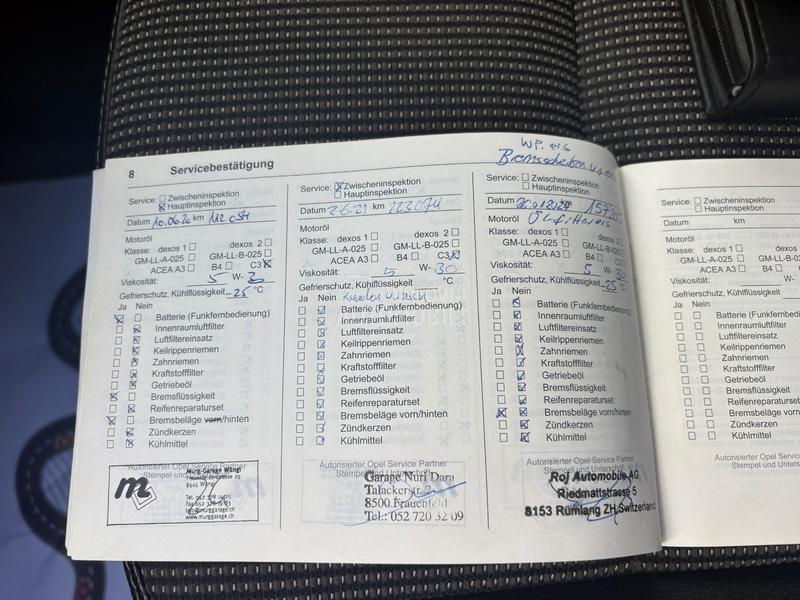 8 Servicebestätigung
Service: Zwischeninspektion
Hauptinspektion
Datum 10.06.20 km 112 051
Motoröl
Klasse: dexos 1 dexos 2
GM-LL-A-025 GM-LL-B-025
ACEA A3 B4 C3
Viskosität: 5 W- 30
Gefrierschutz, Kühlflüssigkeit -25 °C
Ja Nein
Batterie (Funkfernbedienung)
Innenraumluftfilter
Luftfiltereinsatz
Keilrippenriemen
Zahnriemen
Kraftstofffilter
Getriebeöl
Bremsflüssigkeit
Reifenreparaturset
Bremsbeläge vorn/hinten
Zündkerzen
Kühlmittel
Autorisierter Opel Service Partner
Stempel und Unterschrift
m
Murg-Garage Wängi
Frauenfelderstrasse
9545 Wängi
www.murggarage.ch
Service: Zwischeninspektion
Hauptinspektion
Datum 2.6.21 km 123074
Motoröl
Klasse: dexos 1 dexos 2
GM-LL-A-025 GM-LL-B-025
ACEA A3 B4 C3
Viskosität: 5 W- 30
Gefrierschutz, Kühlflüssigkeit °C
Ja Nein Kunden Wunsch
Batterie (Funkfernbedienung)
Innenraumluftfilter
Luftfiltereinsatz
Keilrippenriemen
Zahnriemen
Kraftstofffilter
Getriebeöl
Bremsflüssigkeit
Reifenreparaturset
Bremsbeläge vorn/hinten
Zündkerzen
Kühlmittel
Autorisierter Opel Service Partner
Stempel und Unterschrift
Garage Nuri Dara
Talackerstr.
8500 Frauenfeld
Tel.: 052 720 32 09
Bremsscheiben
Service: Zwischeninspektion
Hauptinspektion
Datum km
Motoröl
Klasse: dexos 1 dexos 2
GM-LL-A-025 GM-LL-B-025
ACEA A3 B4 C3
Viskosität: 5 W- 30
Gefrierschutz, Kühlflüssigkeit -25 °C
Ja Nein
Batterie (Funkfernbedienung)
Innenraumluftfilter
Luftfiltereinsatz
Keilrippenriemen
Zahnriemen
Kraftstofffilter
Getriebeöl
Bremsflüssigkeit
Reifenreparaturset
Bremsbeläge vorn/hinten
Zündkerzen
Kühlmittel
Autorisierter Opel Service Partner
Stempel und Unterschrift
Roj Automobile AG
Riedmattstrasse 5
8153 Rümlang ZH,Switzerland
Service: Zwischeninspektion
Hauptinspektion
Datum km
Motoröl
Klasse: dexos 1
GM-LL-A-025
ACEA A3 B4
Viskosität: W-
Gefrierschutz, Kühlflüssigkeit
Ja Nein
Batterie (Funkfernbe
Innenraumluftfilter
Luftfiltereinsatz
Keilrippenriemen
Zahnriemen
Kraftstofffilter
Getriebeöl
Bremsflüssigkeit
Reifenreparaturset
Bremsbeläge vorn/
Zündkerzen
Kühlmittel
Autorisierter Opel Ser
Stempel und Unters